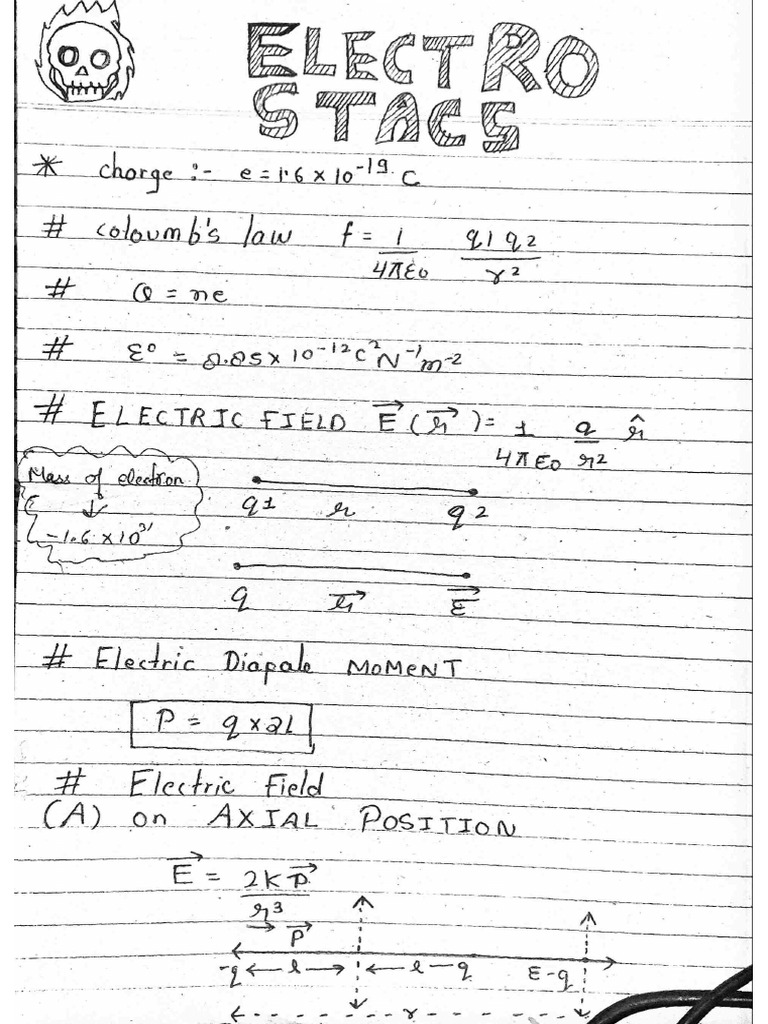 ELECTRO
STACS
* charge :- e = 1.6 × 10⁻¹⁹ C
# coloumb's law f = 1/4πε0 q1 q2/r²
# Q = ne
# ε° = 8.85 × 10⁻¹² C² N⁻¹ m⁻²
# ELECTRIC FIELD E⃗ (r⃗) = 1/4πε0 q/r² r̂
Mass of electron
↓
-1.6 × 10³¹
q1 r q2
q r⃗ E⃗
# Electric Diapole MOMENT
P = q × 2L
# Electric Field
(A) on AXIAL POSITION
E⃗ = 2KP⃗/r³
→ P⃗
-q ← l → ← l - q E-q
r